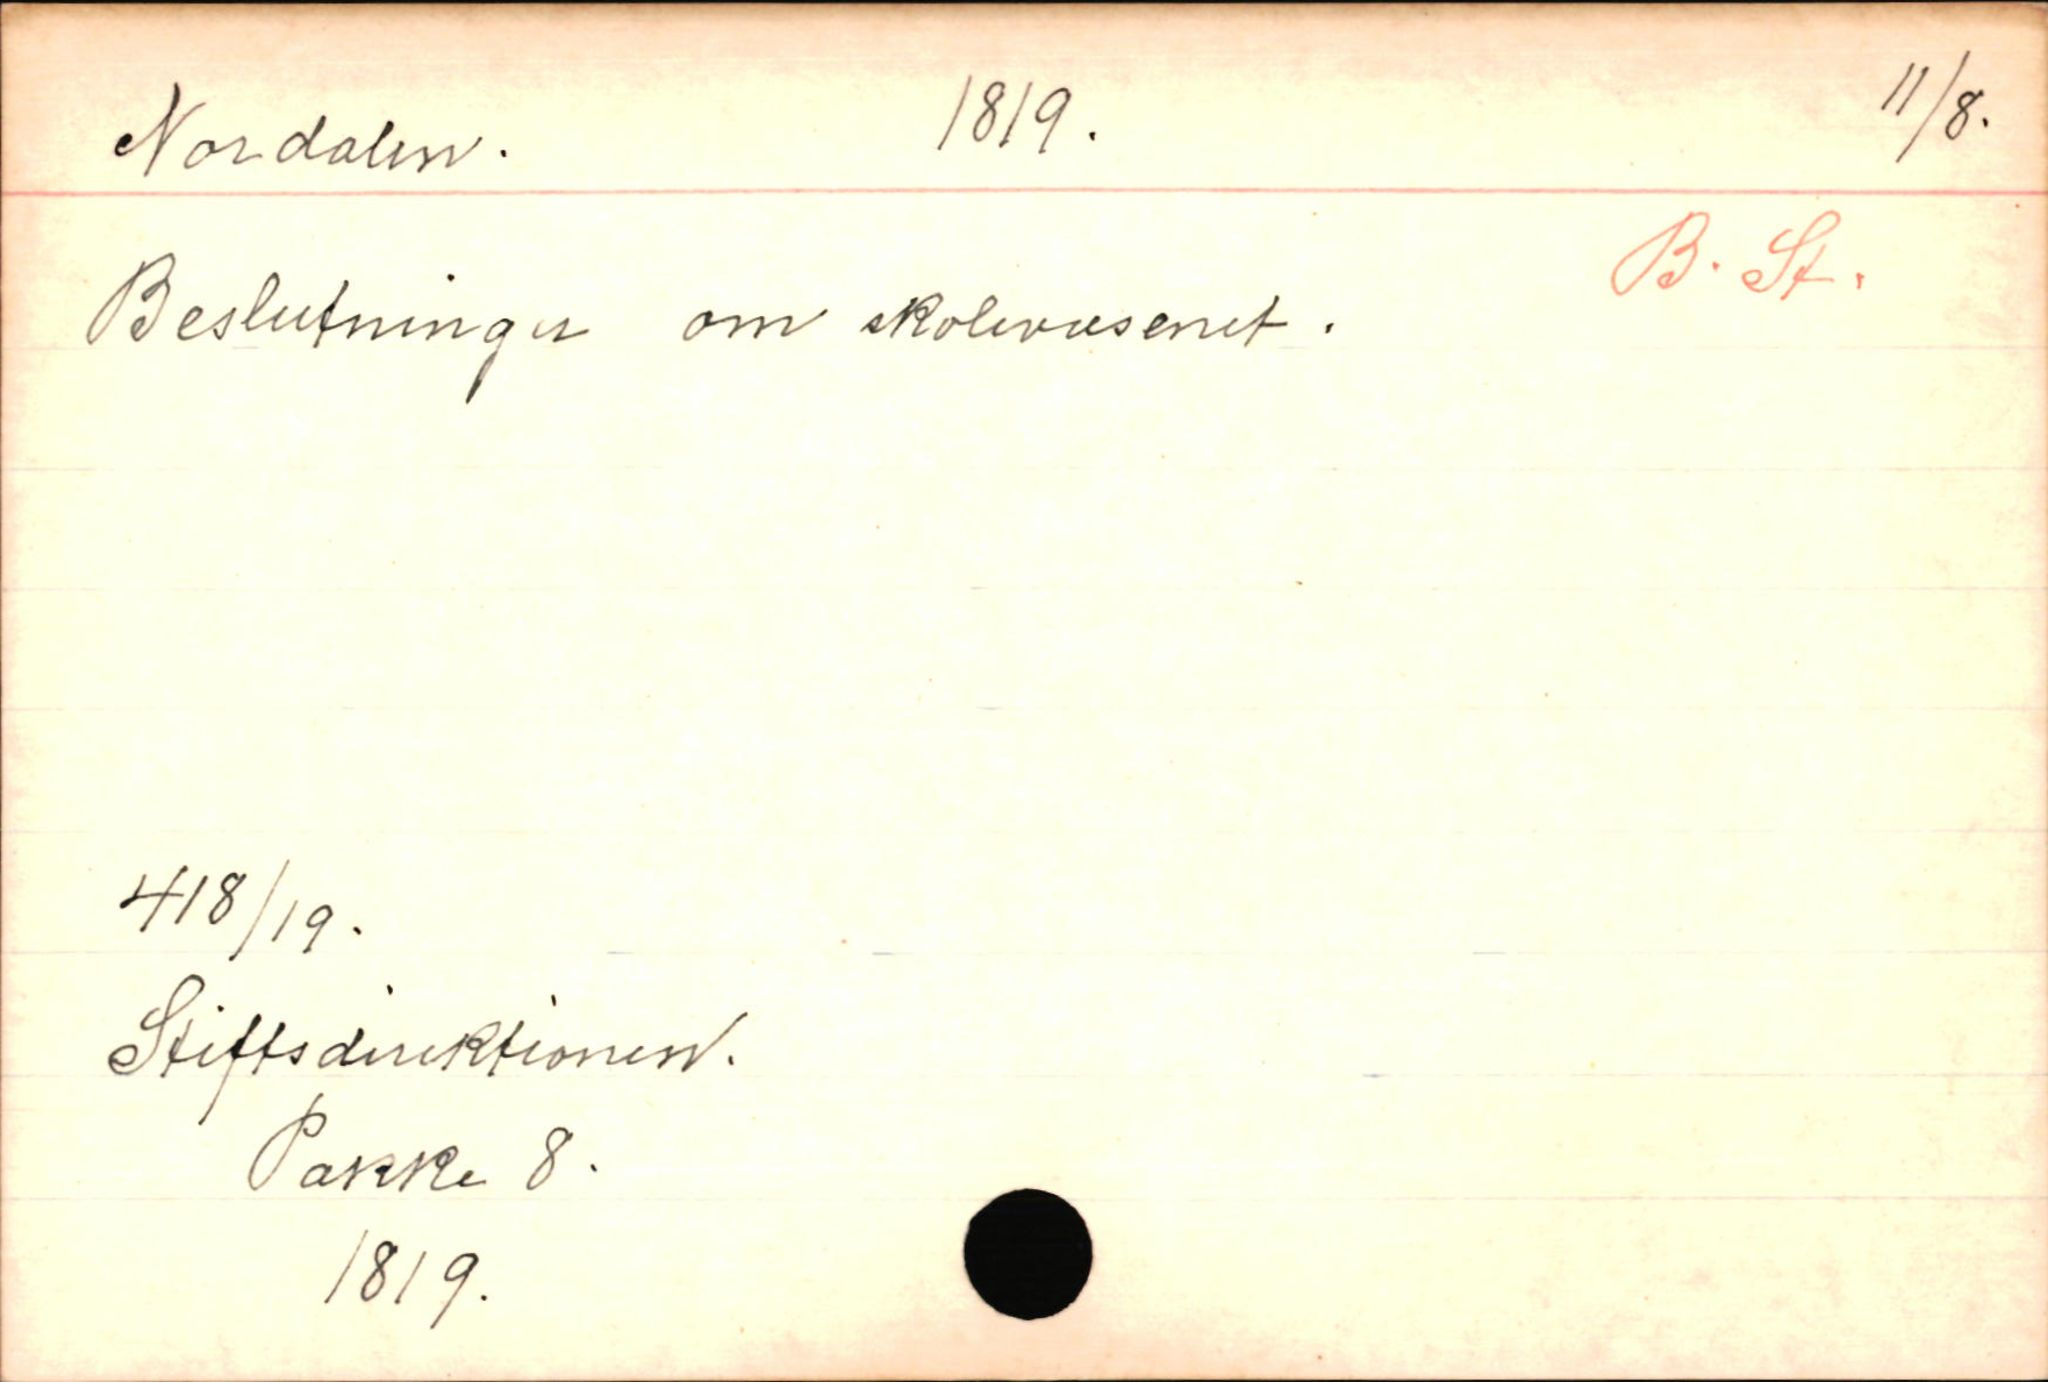 Nordalen. 1819. 11/8.
B. St.
Beslutninger om skolevæsenet.
418/19.
Stiftsdirektionen.
Pakke 8.
1819.